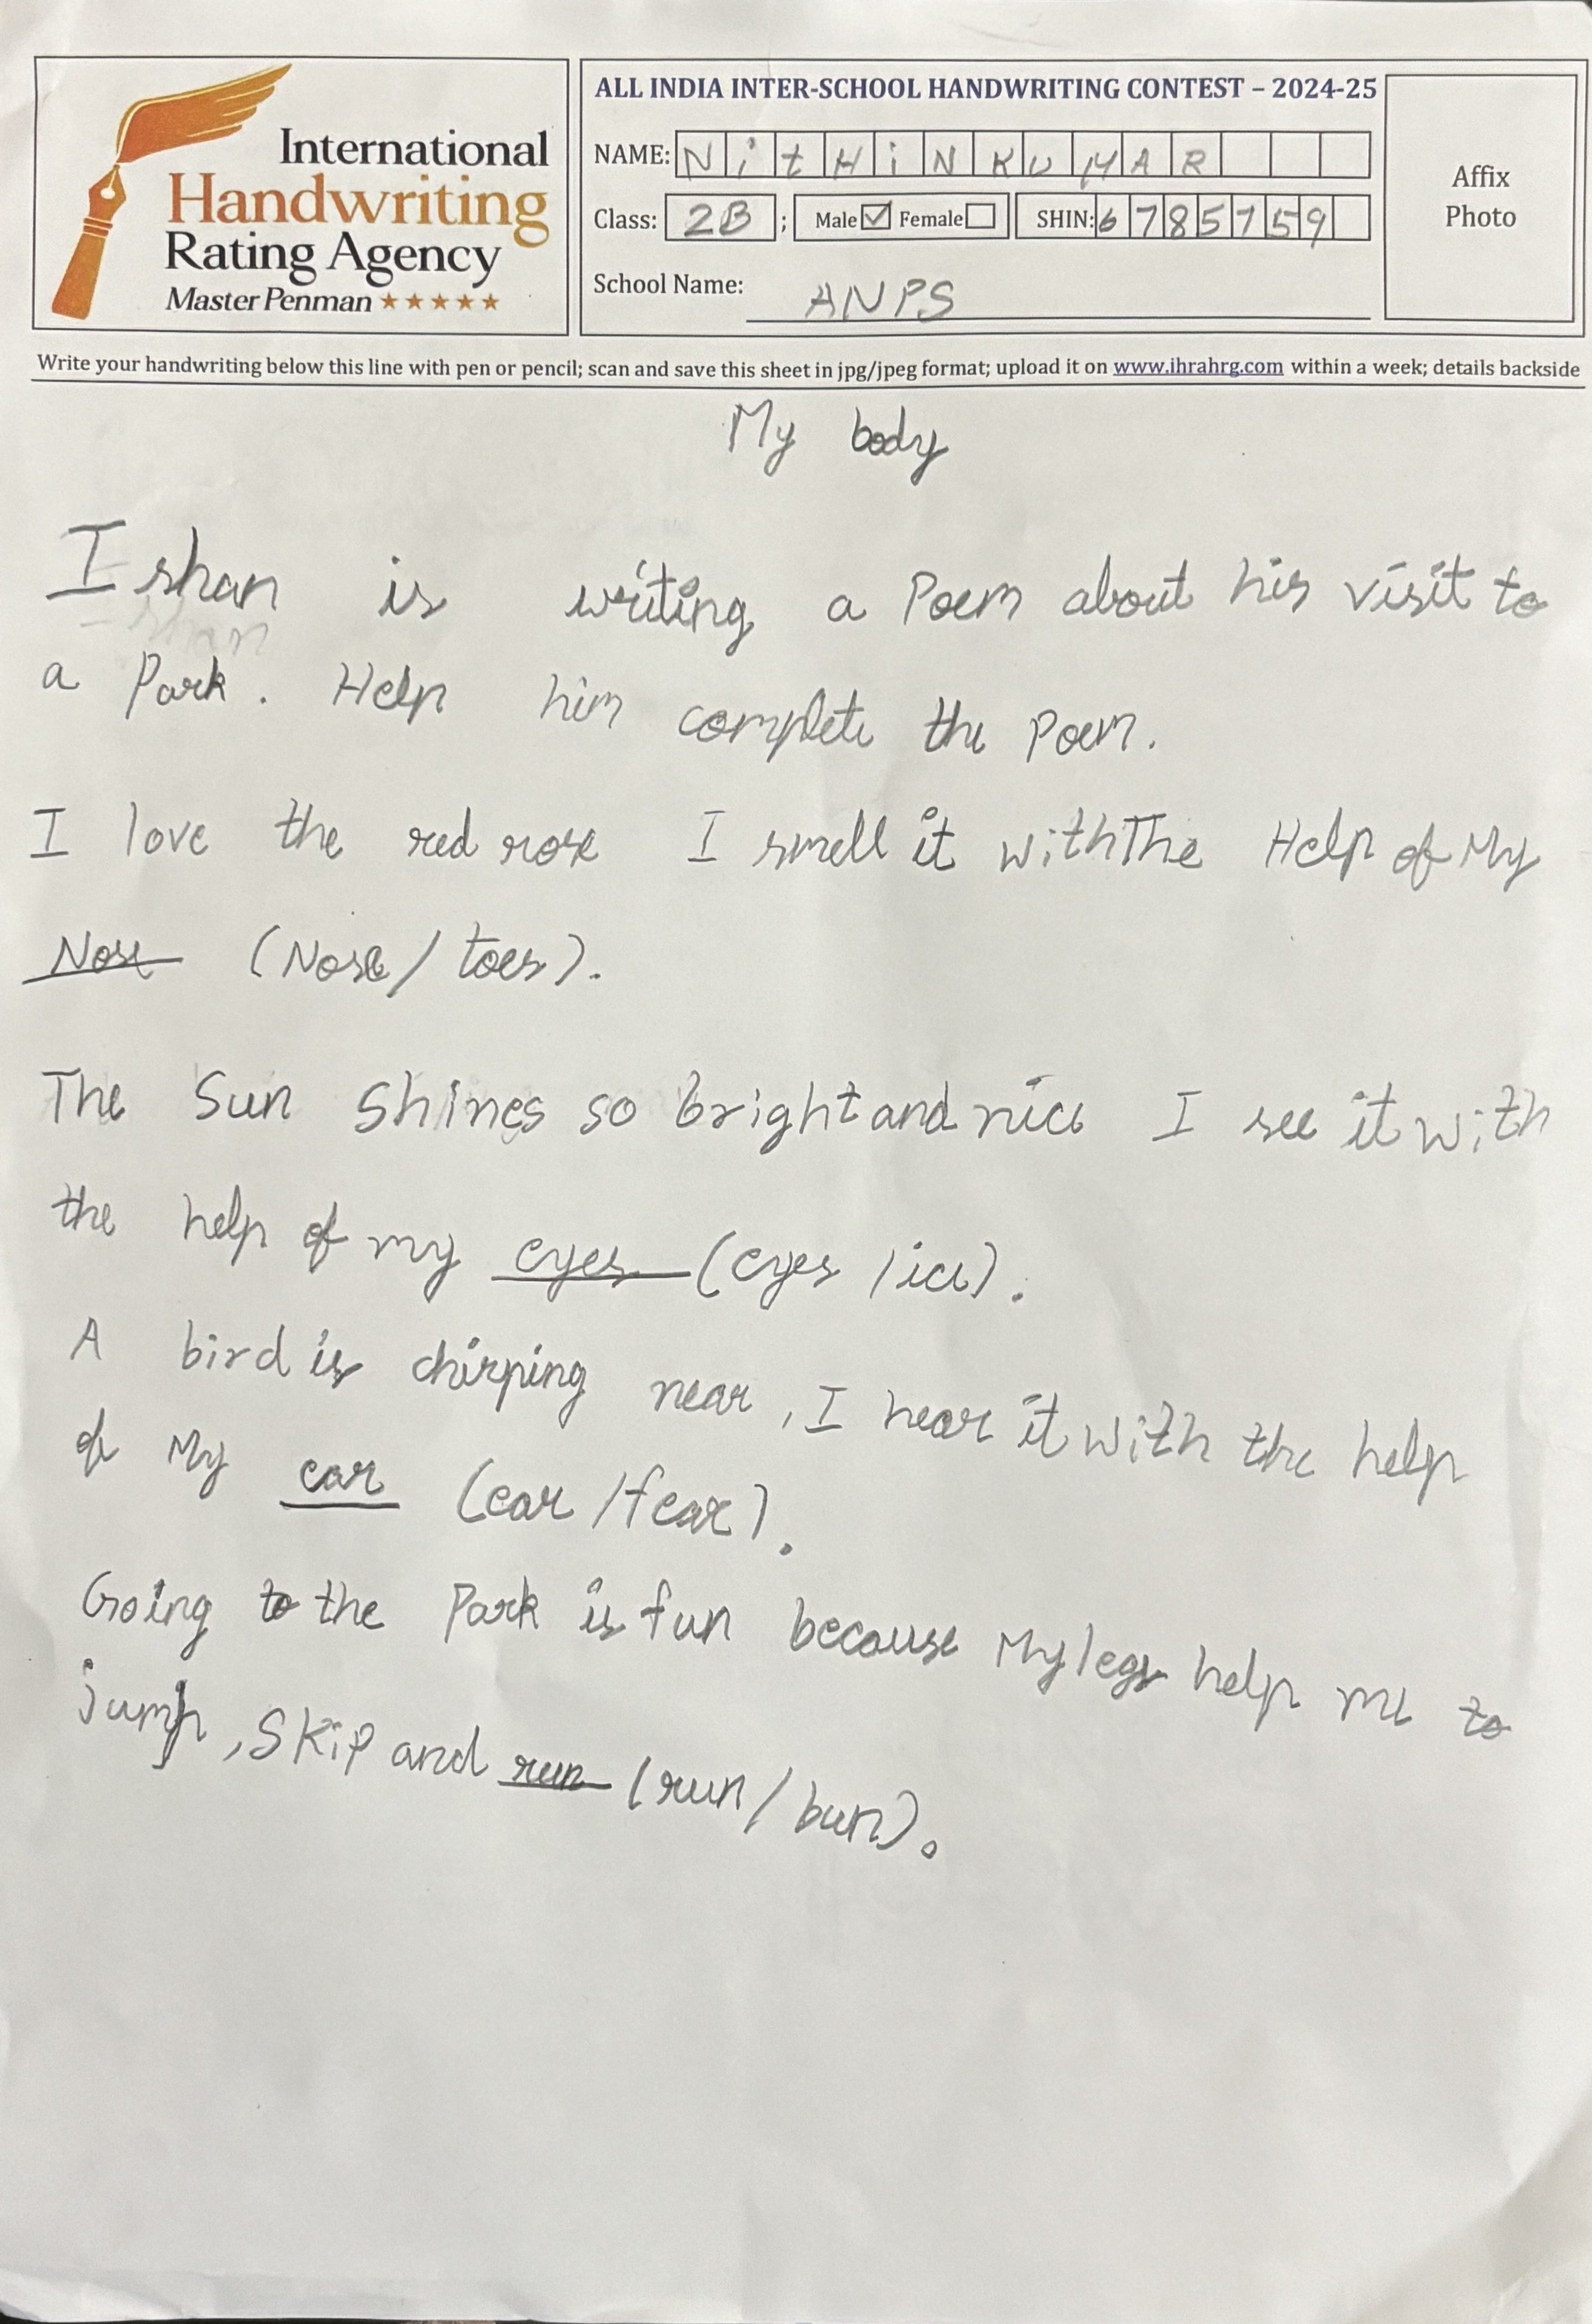 International
Handwriting
Rating Agency
Master Penman ★★★★★
ALL INDIA INTER-SCHOOL HANDWRITING CONTEST – 2024-25
NAME: NitHiN KUMAR
Class: 2B ; Male ☑ Female ☐ SHIN: 6785759
School Name: ANPS
Affix
Photo
Write your handwriting below this line with pen or pencil; scan and save this sheet in jpg/jpeg format; upload it on www.ihrahrg.com within a week; details backside
My body
Ishan is writing a Poem about his visit to
a Park. Help him complete the Poem.
I love the red rose I smell it withThe Help of My
Nose (Nose/toes).
The Sun Shines so bright and nice I see it with
the help of my eyes (eyes/ice).
A bird is chirping near, I hear it with the help
of My ear (ear/fear).
Going to the Park is fun because My legs help me to
jump, SKiP and run (run/bun).